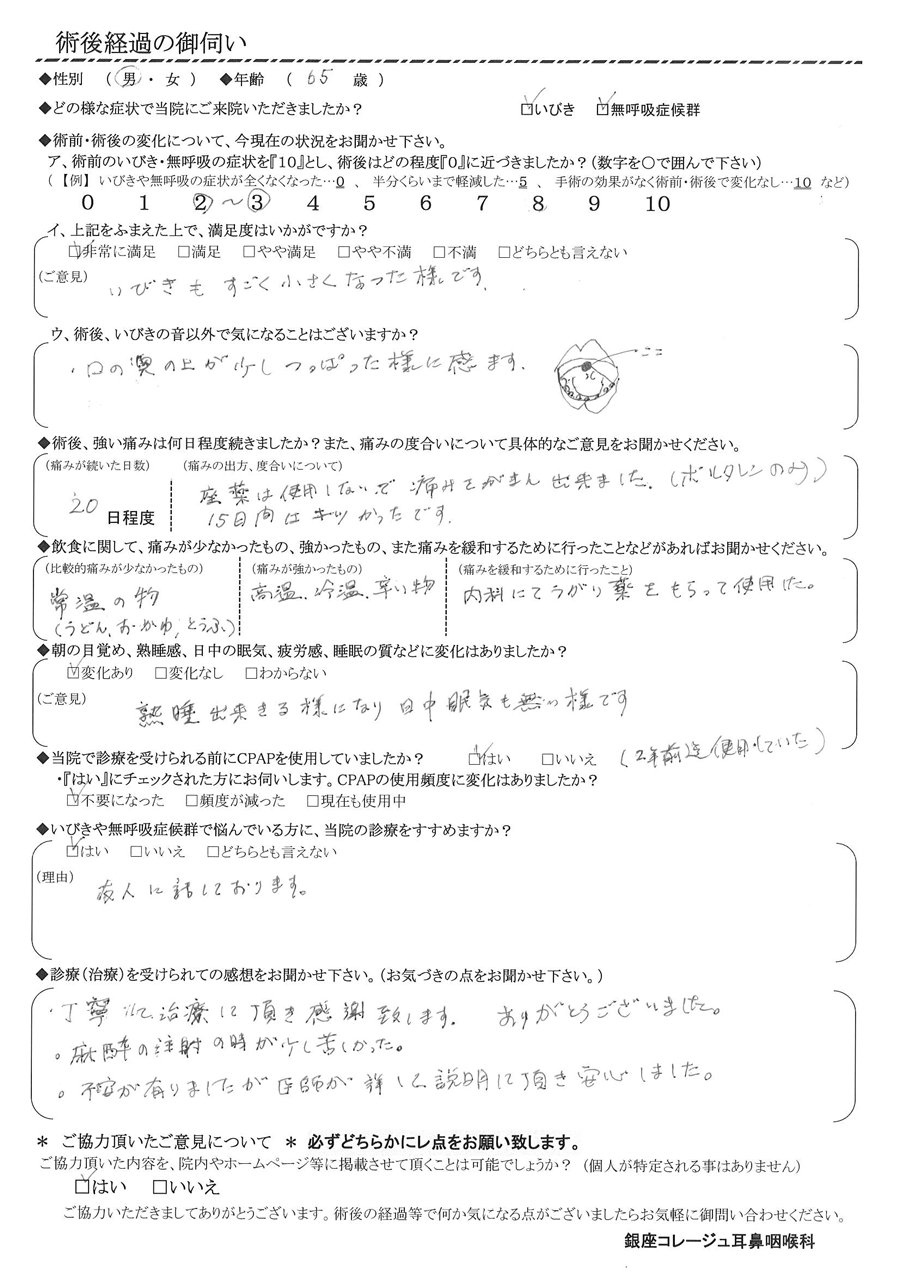 術後経過の御伺い
◆性別 （ 男 ・ 女 ） ◆年齢 （ 65 歳 ）
◆どの様な症状で当院にご来院いただきましたか？ ☑いびき ☑無呼吸症候群
◆術前・術後の変化について、今現在の状況をお聞かせ下さい。
ア、術前のいびき・無呼吸の症状を『10』とし、術後はどの程度『0』に近づきましたか？（数字を〇で囲んで下さい）
（ 【例】 いびきや無呼吸の症状が全くなくなった…0 、 半分くらいまで軽減した…5 、 手術の効果がなく術前・術後で変化なし…10 など）
0 1 2 ～ 3 4 5 6 7 8 9 10
イ、上記をふまえた上で、満足度はいかがですか？
☑非常に満足 □満足 □やや満足 □やや不満 □不満 □どちらとも言えない
（ご意見） いびきも すごく小さくなった様です.
ウ、術後、いびきの音以外で気になることはございますか？
・口の奥の上が少しつっぱった様に感ます. ここ
◆術後、強い痛みは何日程度続きましたか？また、痛みの度合いについて具体的なご意見をお聞かせください。
（痛みが続いた日数） （痛みの出方、度合いについて）
20 日程度 座薬は使用しないで 痛みをがまん出来ました.（ボルタレンのみ）
15日間はキツかったです.
◆飲食に関して、痛みが少なかったもの、強かったもの、また痛みを緩和するために行ったことなどがあればお聞かせください。
（比較的痛みが少なかったもの） （痛みが強かったもの） （痛みを緩和するために行ったこと）
常温の物 高温、冷温、辛い物 内科にてうがい薬をもらって使用た。
（うどん、おかゆ、とうふ）
◆朝の目覚め、熟睡感、日中の眠気、疲労感、睡眠の質などに変化はありましたか？
☑変化あり □変化なし □わからない
（ご意見） 熟睡出来きる様になり日中眠気も無い様です
◆当院で診療を受けられる前にCPAPを使用していましたか？ ☑はい □いいえ （2年前迄使用していた）
・『はい』にチェックされた方にお伺いします。CPAPの使用頻度に変化はありましたか？
☑不要になった □頻度が減った □現在も使用中
◆いびきや無呼吸症候群で悩んでいる方に、当院の診療をすすめますか？
☑はい □いいえ □どちらとも言えない
（理由） 友人に話しております。
◆診療（治療）を受けられての感想をお聞かせ下さい。（お気づきの点をお聞かせ下さい。）
・丁寧にて治療に頂き感謝致します. ありがとうございました。
。麻酔の注射の時が少し苦しかった。
。不安が有りましたが医師が詳しく説明に頂き安心しました。
＊ ご協力頂いたご意見について ＊ 必ずどちらかにレ点をお願い致します。
ご協力頂いた内容を、院内やホームページ等に掲載させて頂くことは可能でしょうか？（個人が特定される事はありません）
☑はい □いいえ
ご協力いただきましてありがとうございます。術後の経過等で何か気になる点がございましたらお気軽に御問い合わせください。
銀座コレージュ耳鼻咽喉科